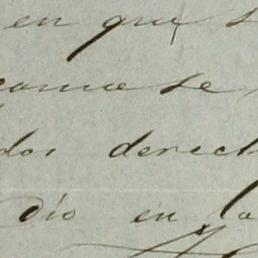 en que s
se
dos derech
dío en la